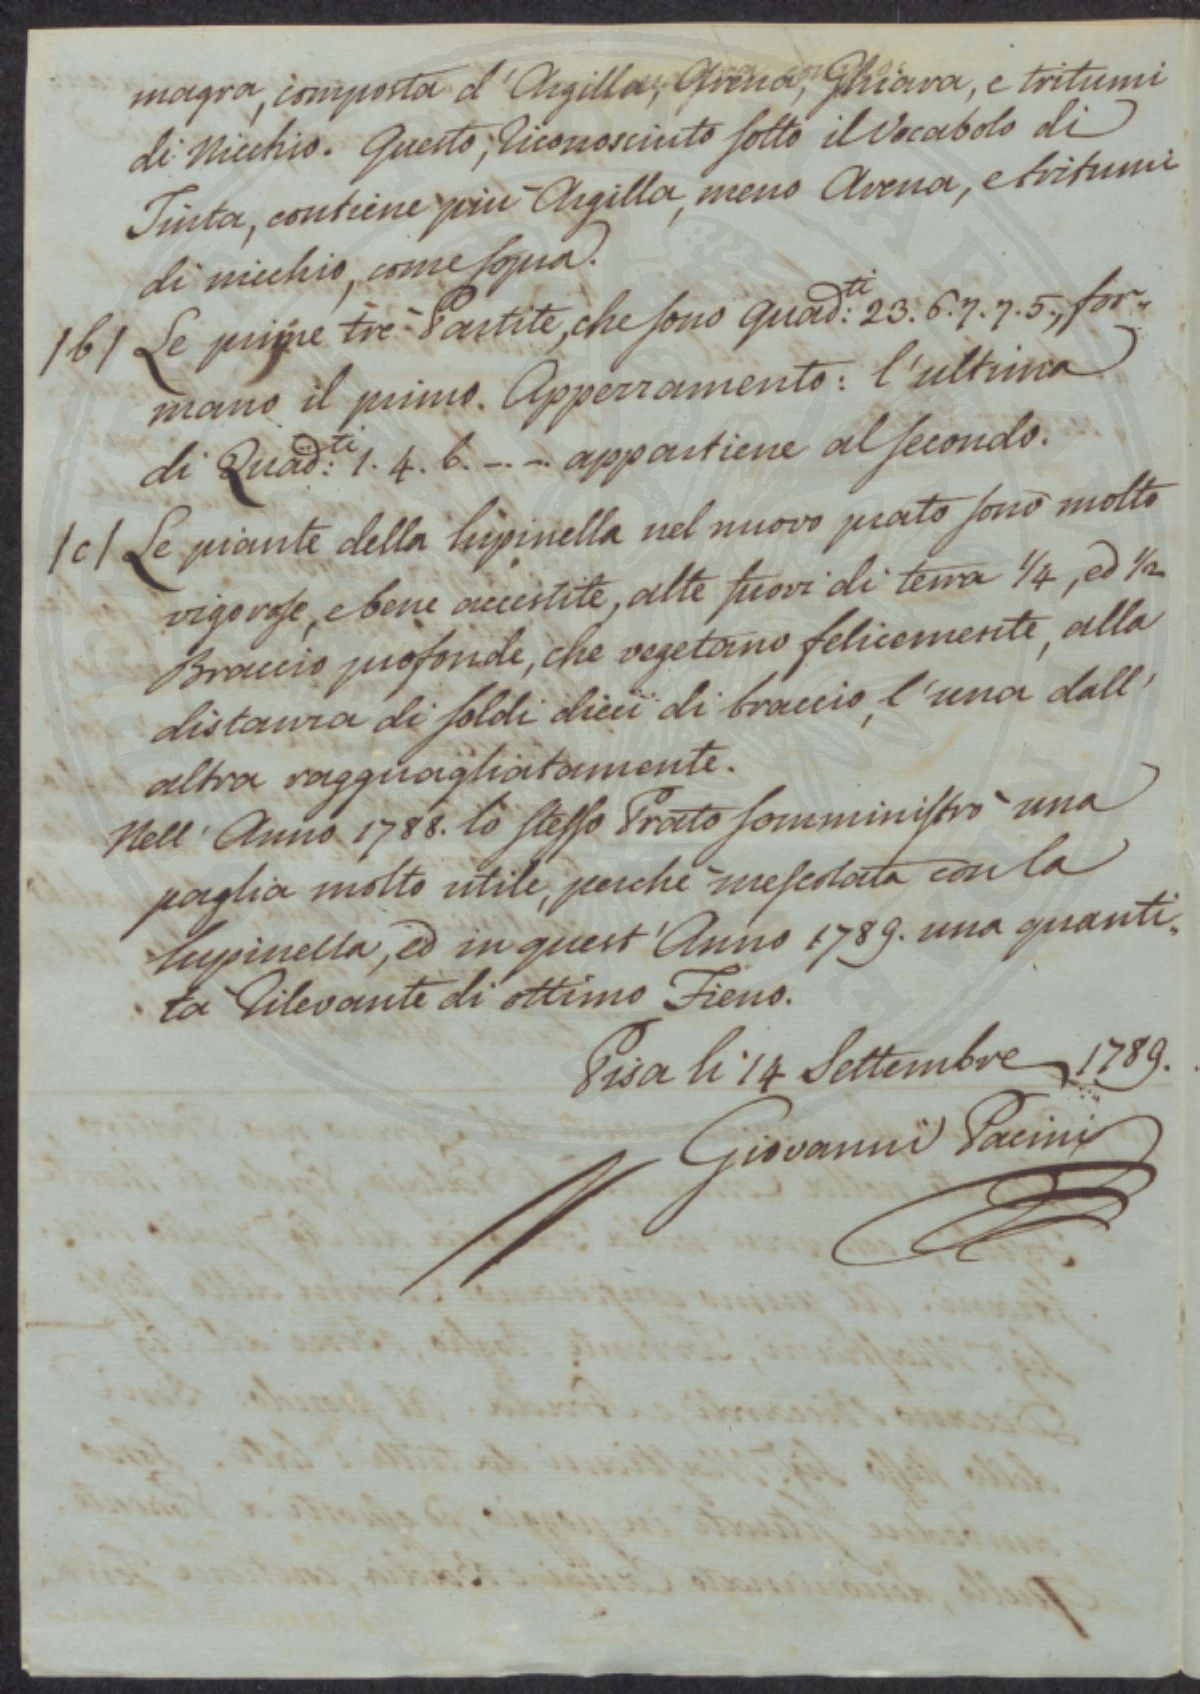 magra, composta d'Argilla, Arena, Ghiara, e tritumi
di Nicchio. Questo, riconosciuto sotto il Vocabolo di
Tinta, contiene più Argilla, meno Arena, e tritumi
di nicchio, come sopra.
/b/ Le prime tre Partite, che sono Quad:ti 23. 6. 7. 7. 5., for-
mano il primo Appezzamento: l'ultima
di Quad:ti 1. 4. 6. -- -- appartiene al secondo.
/c/ Le piante della lupinella nel nuovo prato sono molto
vigorose, e bene accestite, alte fuori di terra 1/4, ed 1/2
Braccio profonde, che vegetano felicemente, alla
distanza di soldi dieci di braccio, l'una dall'
altra ragguagliatamente.
Nell'Anno 1788. lo stesso Prato somministrò una
paglia molto utile, perchè mescolata con la
lupinella, ed in quest'Anno 1789. una quanti-
tà rilevante di ottimo Fieno.
Pisa li 14 Settembre 1789.
Giovanni Pacini